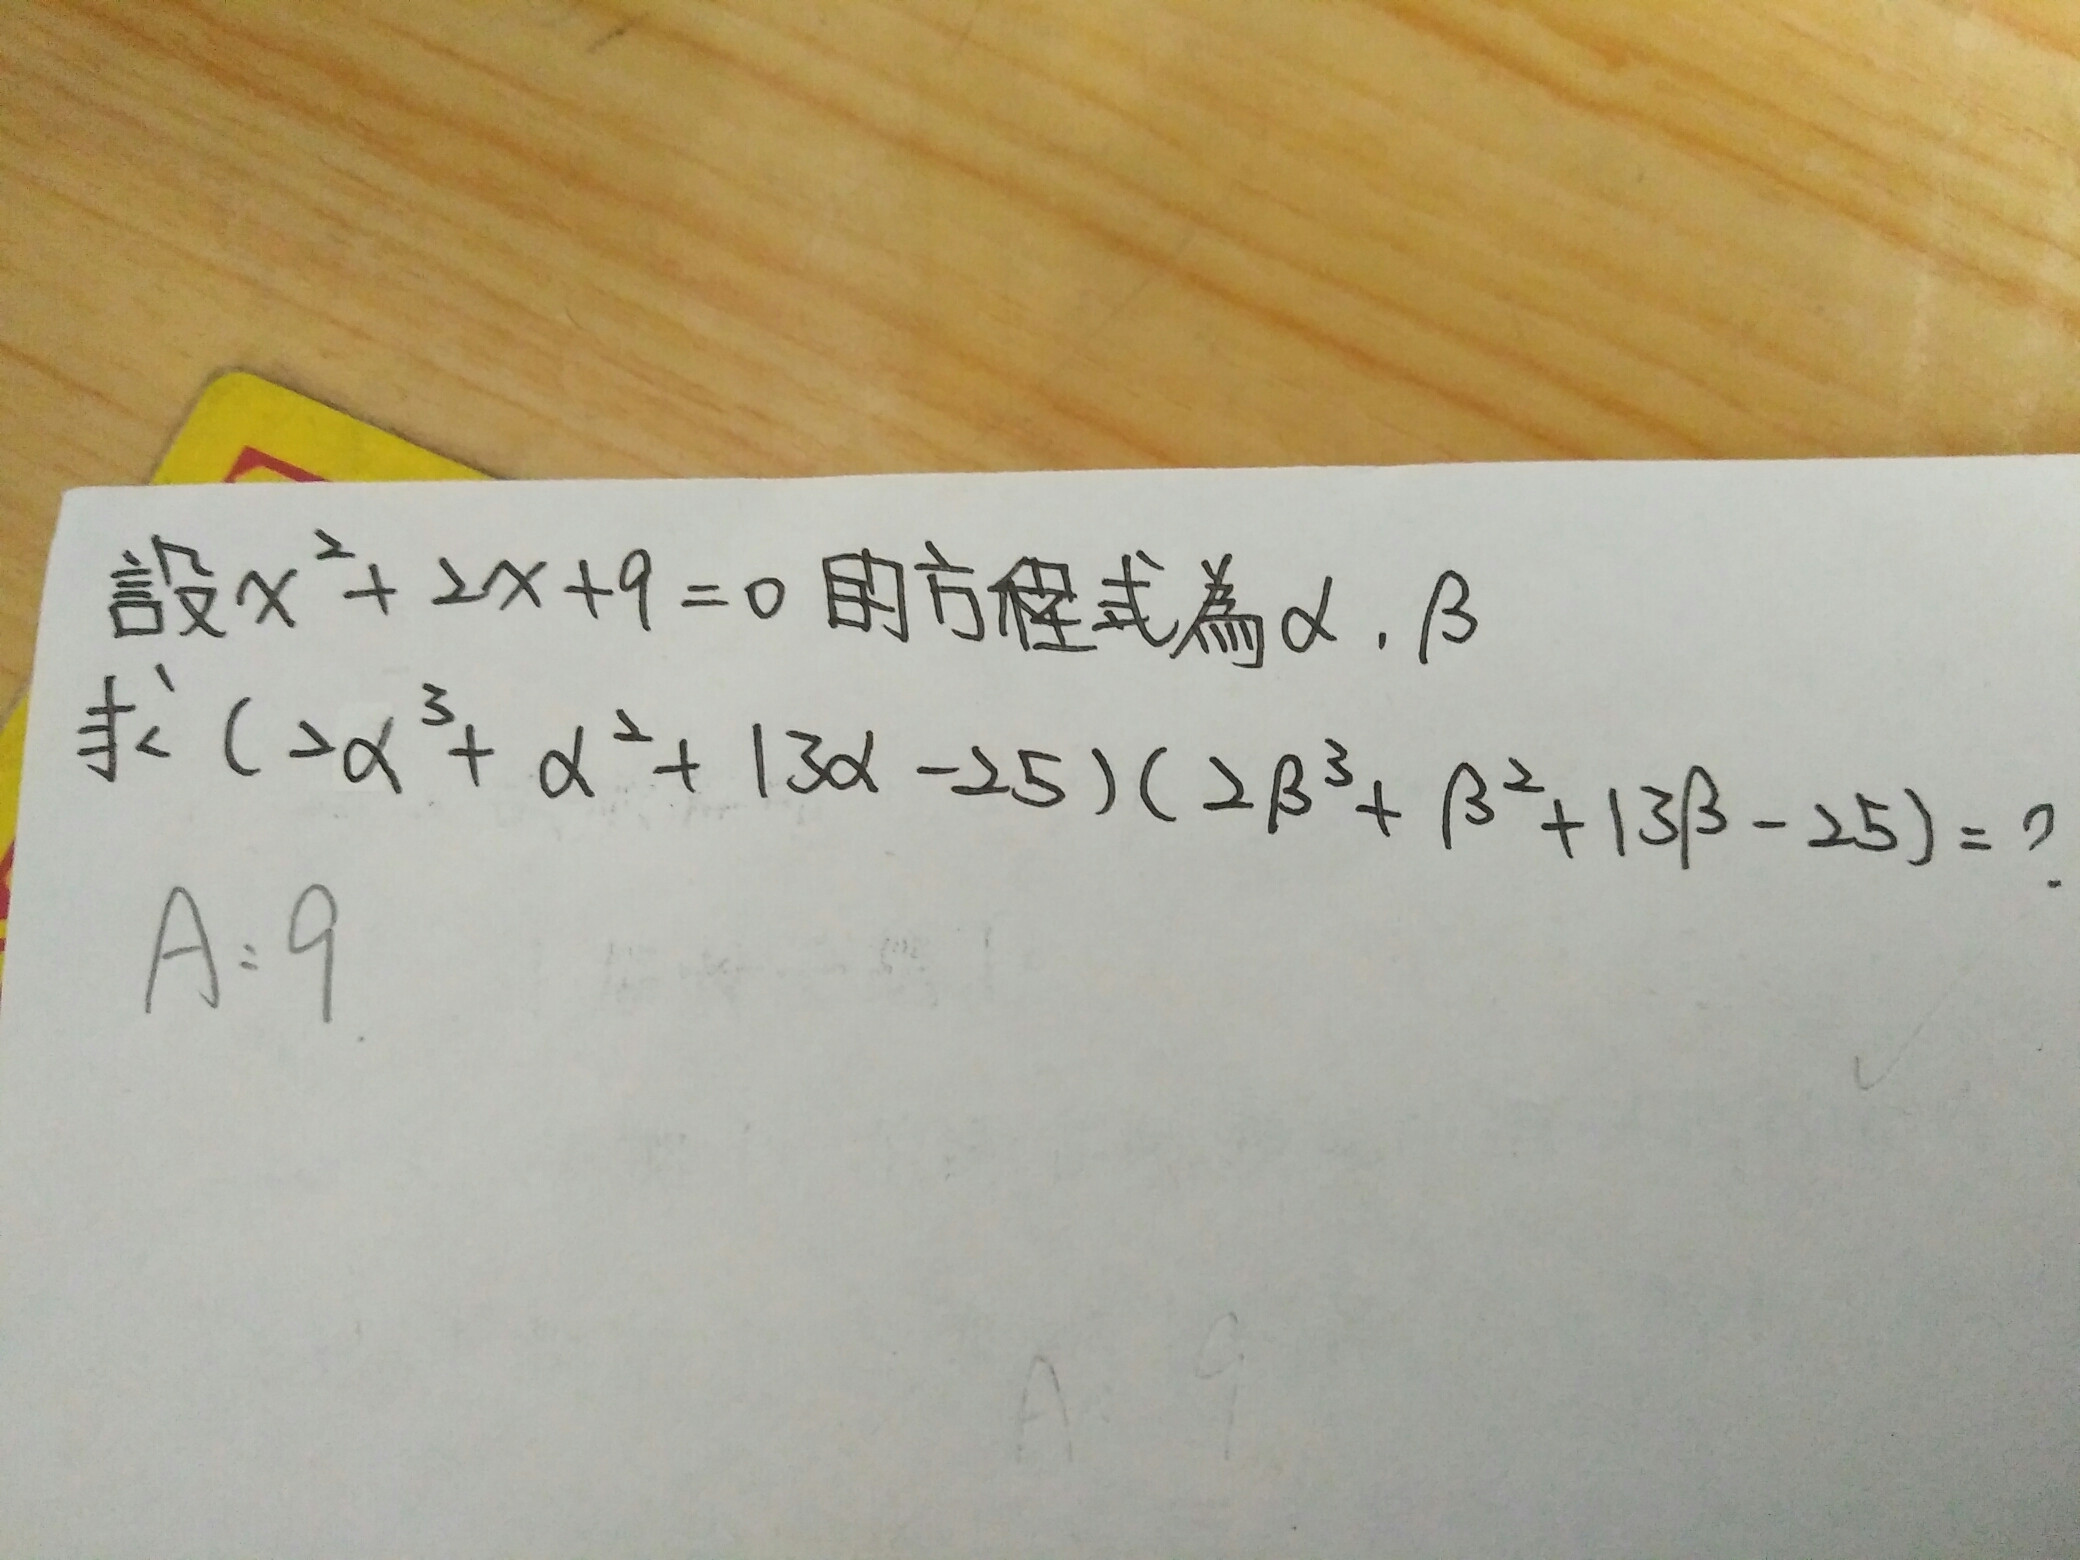 設x²+2x+9=0的方程式為α.β
求(2α³+α²+13α-25)(2β³+β²+13β-25)=?
A:9
A 9